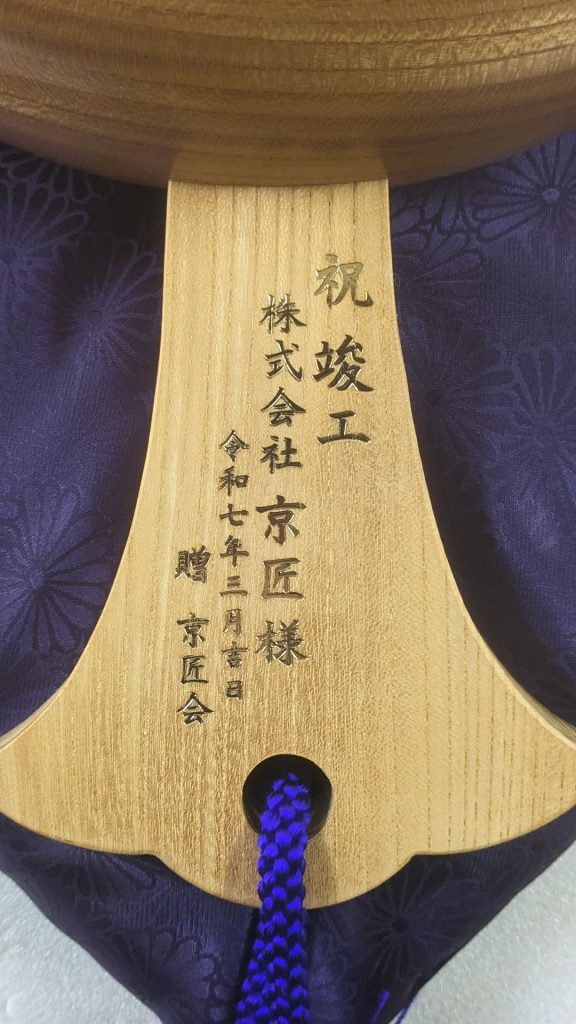 祝 竣工
株式会社 京匠様
令和七年三月吉日
贈 京匠会